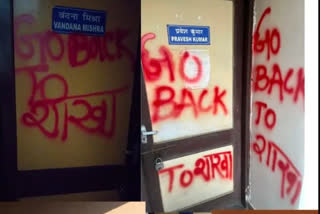 वंदना मिश्रा
VANDANA MISHRA
GO BACK
TO
शाखा
प्रवेश कुमार
PRAVESH KUMAR
GO
BACK
TO शाखा
GO
BACK
TO
शाखा